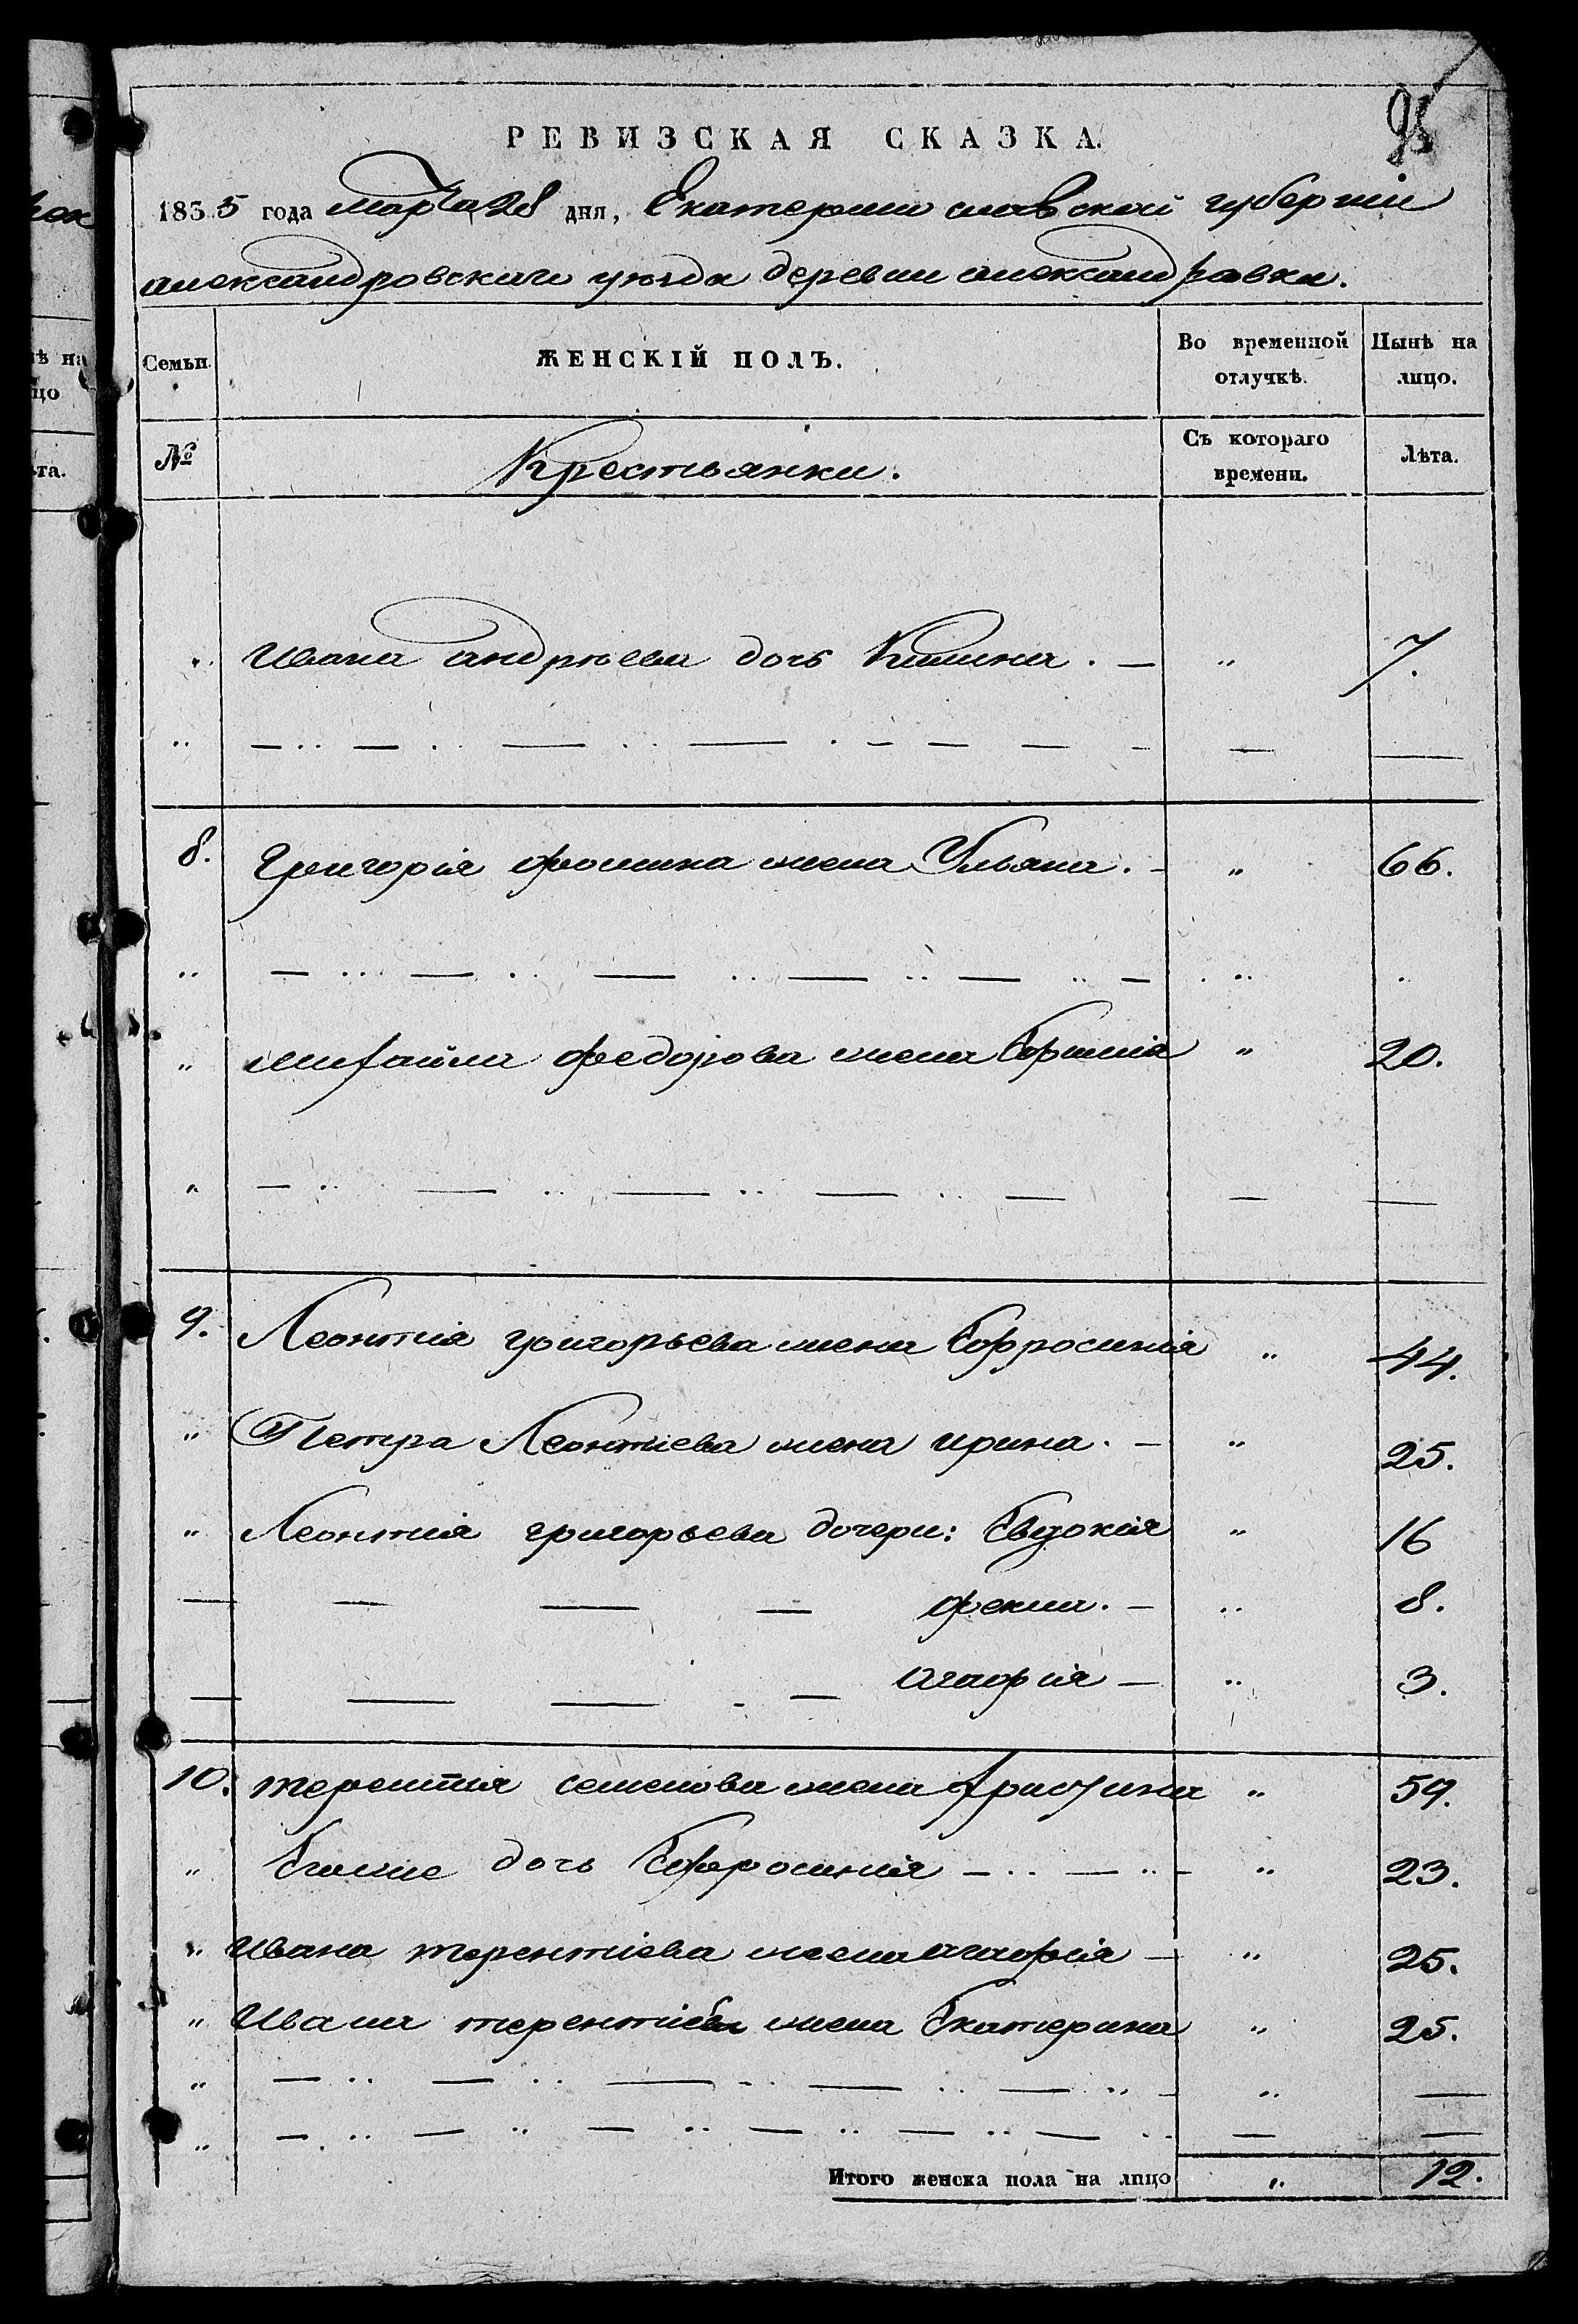 95
РЕВИЗСКАЯ СКАЗКА.
1835 года марта 28 дня, Екатеринославской губернии
александровскаго уезда деревни александровки.
Семьи.
ЖЕНСКІЙ ПОЛЪ.
Во временной отлучкѣ.
Нынѣ на лицо.
№
Крестьянки.
Съ котораго времени.
Лѣта.
„ Ивана андрѣева дочь Килина. — „ 7.
8. Григорія фомина жена Ульяна. — „ 66.
„ михайла федорова жена „ 20.
9. Леонтія григорьева жена Ефросинія „ 44.
„ Петра Леонтиева жена ирина. — „ 25.
„ Леонтия григорьева дочери: Евдокия „ 16
— — — — фекла. — „ 8.
— — — — агафия — „ 3.
10. терентия семенова жена христина „ 59.
„ Егоже дочь Ефросиния — „ 23.
„ ивана терентиева жена агафия — „ 25.
„ Ивана терентиева жена Екатерина „ 25.
Итого женска пола на лицо „ 12.